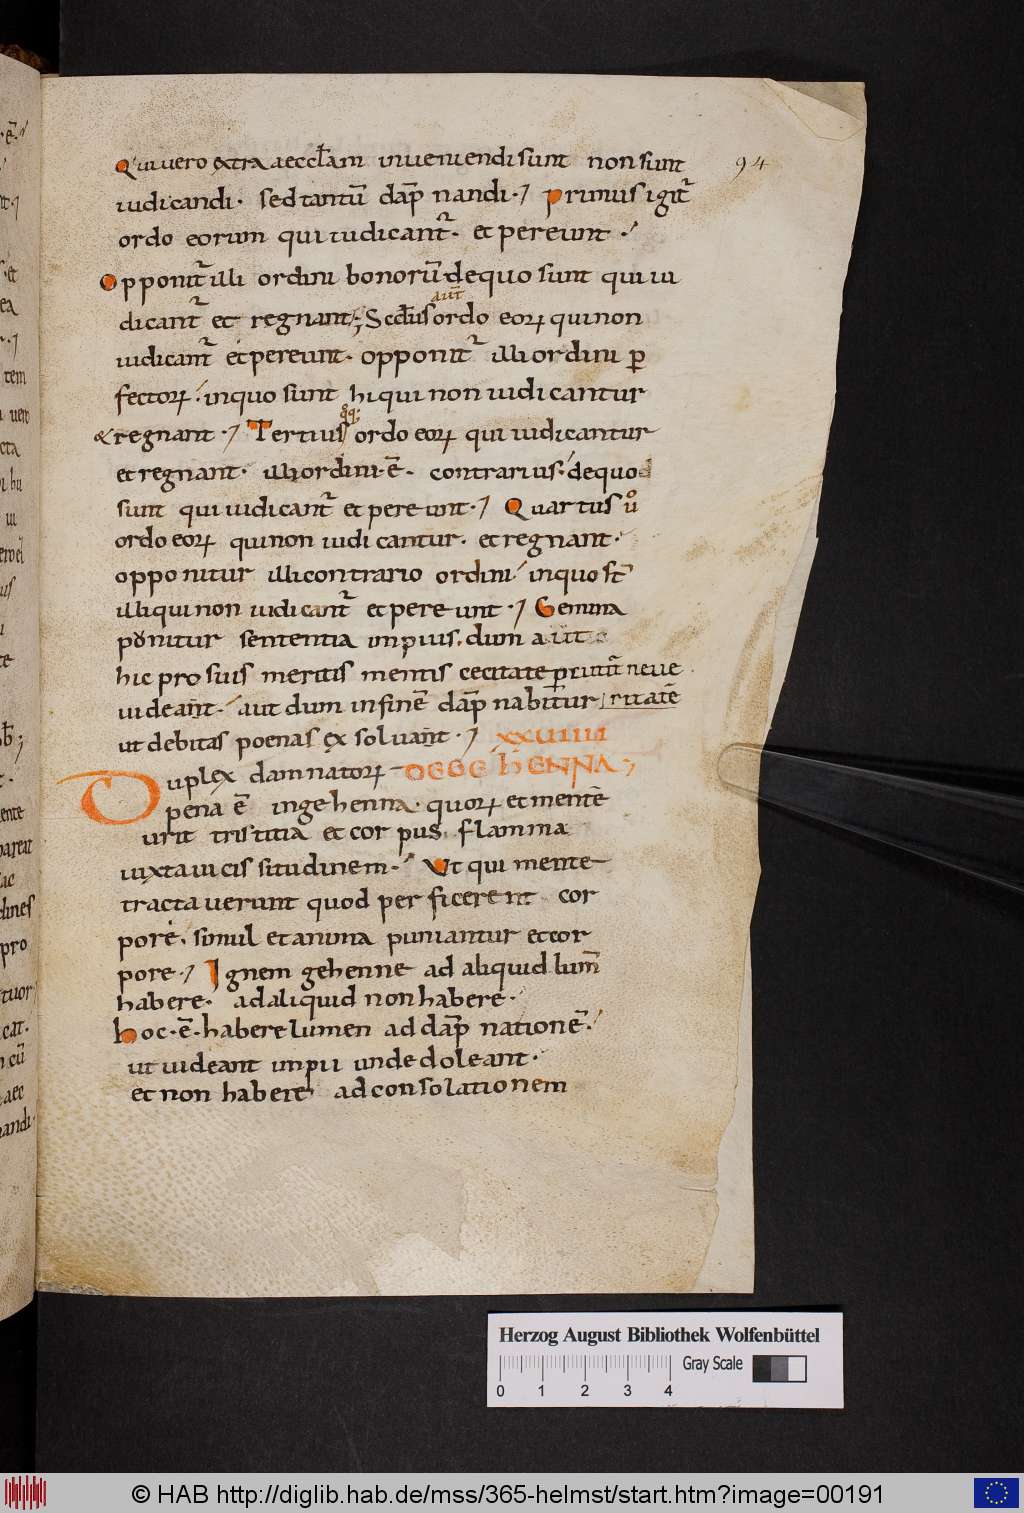 Qui uero extra aeccl̄am inueniendi sunt non sunt
94
iudicandi· sed tantū dāp nandi·/ primus igit᷑
ordo eorum qui iudicant᷑· et pereunt·/
Opponit᷑ illi ordini bonorū dequo sunt qui iu
aut̄
dicant᷑ et regnant·; Secd̄us ordo eoꝝ qui non
iudicant᷑ et pereunt· opponit᷑ illi ordini ꝑ
fectoꝝ·/ inquo sunt hi qui non iudicantur
qq;
& regnant·/ Tertius ordo eoꝝ qui iudicantur
et regnant· illi ordini·ē· contrarius·/ dequod
sunt qui iudicant᷑ et pereunt·/ Quartus ůo
ordo eoꝝ qui non iudicantur· et regnant·
opponitur illi contrario ordini/ inquo st̄
illi qui non iudicant᷑ et pereunt·/ Gemina
ponitur sententia impiis· dum aut
hic pro suis meritis mentis cecitate ꝑcutiūt᷑ neue
uideant·/ aut dum in finē dāp nabūtur ritatē
ut debitas poenas exsoluant·/ XXVIIII
Duplex damnatoꝝ DE GEHENNA;
pena ē ingehenna· quoꝝ et mentē
urit tristitia et corpus flamma
iuxta uicissitudinem·/ Ut qui mente
tractauerunt quod perficerent cor
pore· simul et anima puniantur et cor
pore·/ Ignem gehenne ad aliquid lum̄
habere· ad aliquid non habere·
hoc·ē·habere lumen ad dāp nationē·/
ut uideant impii unde doleant·
et non habere ad consolationem
·ē·/
nt·/
·et
ea
·/
tem
uero
cta
hu
iu
us
te
b;
ente
pareat
ac
dines
pro
tuor
cat·
cū
aec
nandi·
Herzog August Bibliothek Wolfenbüttel
Gray Scale
0 1 2 3 4
© HAB http://diglib.hab.de/mss/365-helmst/start.htm?image=00191